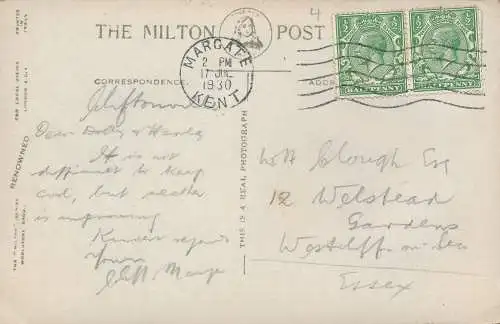 THE MILTON POST
4
MARGATE
2 PM
17 JUL
1930
KENT
HALFPENNY
HALFPENNY
CORRESPONDENCE
ADDR
Cliftonv
Dear Dolly &
It is not
difficult to keep
cool, but weather
is improving
Kindest regards
Yours
Cliff, Marge
THIS IS A REAL PHOTOGRAPH
W H Clough Esq
12 Welstead
Gardens
Westcliff-on-Sea
Essex
RENOWNED
PRINTED IN